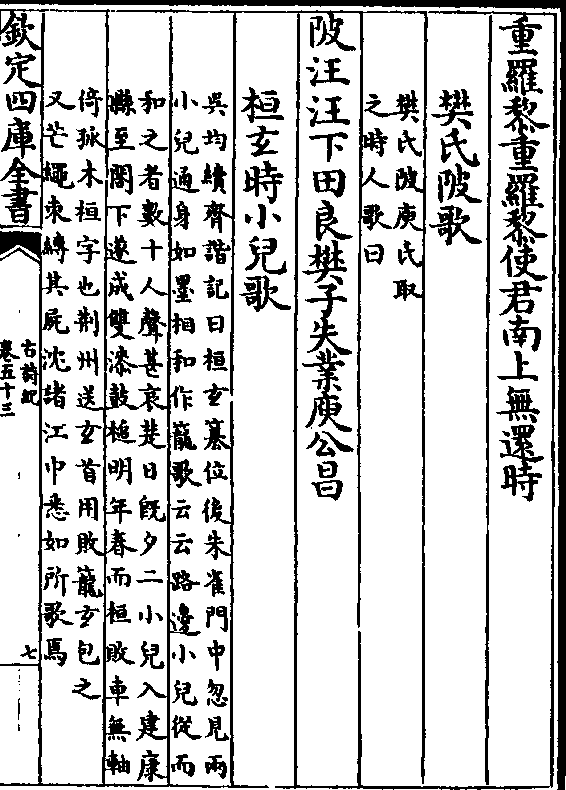 重羅黎重羅黎使君南上無還時
樊氏陂歌
樊氏陂庾氏取
之時人歌曰
陂汪汪下田良樊子失業庾公昌
桓玄時小兒歌
吳均續齊諧記曰桓玄簒位後朱雀門中忽見兩
小兒通身如墨相和作籠歌云云路邊小兒從而
和之者數十人聲甚哀楚日既夕二小兒入建康
縣至閣下遂成雙漆鼓槌明年春而桓敗車無軸
倚孤木桓字也荆州送玄首用敗籠玄包之
又芒繩束縛其屍沈諸江中悉如所歌焉
欽定四庫全書
古詩紀
卷五十三
七